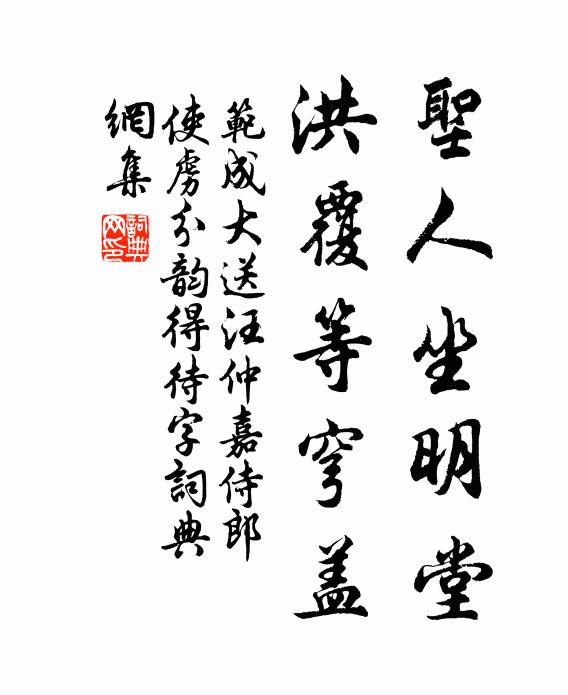 聖人坐明堂
洪覆等穹蓋
範成大送汪仲嘉侍郎
使虜分韵得待字詞典
網集
詞典
网印